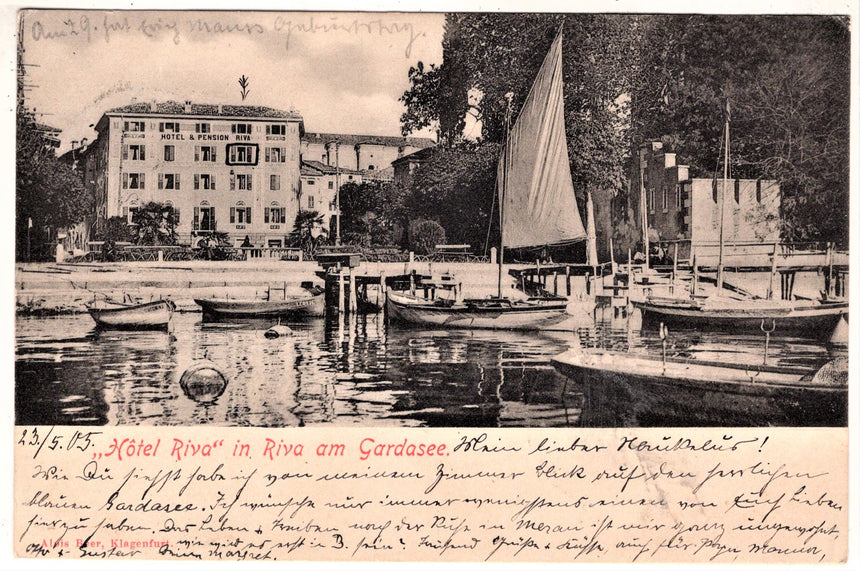 Am 29. hat Erich Mauss Geburtstag.
HOTEL & PENSION RIVA
23/5.05. „Hôtel Riva“ in Riva am Gardasee. Mein lieber !
Wie Du siehst habe ich von meinem Zimmer Blick auf den herrlichen
blauen Gardasee. Ich wünsche nur immer wenigstens einen von Euch Lieben
hier zu haben. Das Leben & Treiben nach der Ruhe in Meran ist mir ganz ungewohnt,
Alois Beer, Klagenfurt. wie wird es erst in B. sein? Tausend Grüße & Küsse, auch für Papa, Mama,
Otto & Gustav Deine Margret.